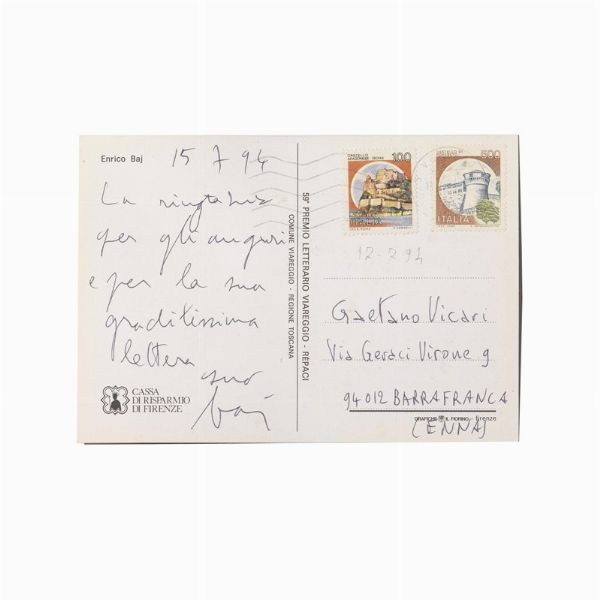 Enrico Baj
15 7 94
La ringrazio
per gli auguri
e per la sua
graditissima
lettera
suo
baj
CASSA
DI RISPARMIO
DI FIRENZE
59° PREMIO LETTERARIO VIAREGGIO - REPACI
COMUNE VIAREGGIO - REGIONE TOSCANA
CASTELLO
100
500
ITALIA
12-2 94
Gaetano Vicari
Via Geraci Virone 9
94012 BARRAFRANCA
GRAFICHE IL FIORINO - Firenze
(ENNA)